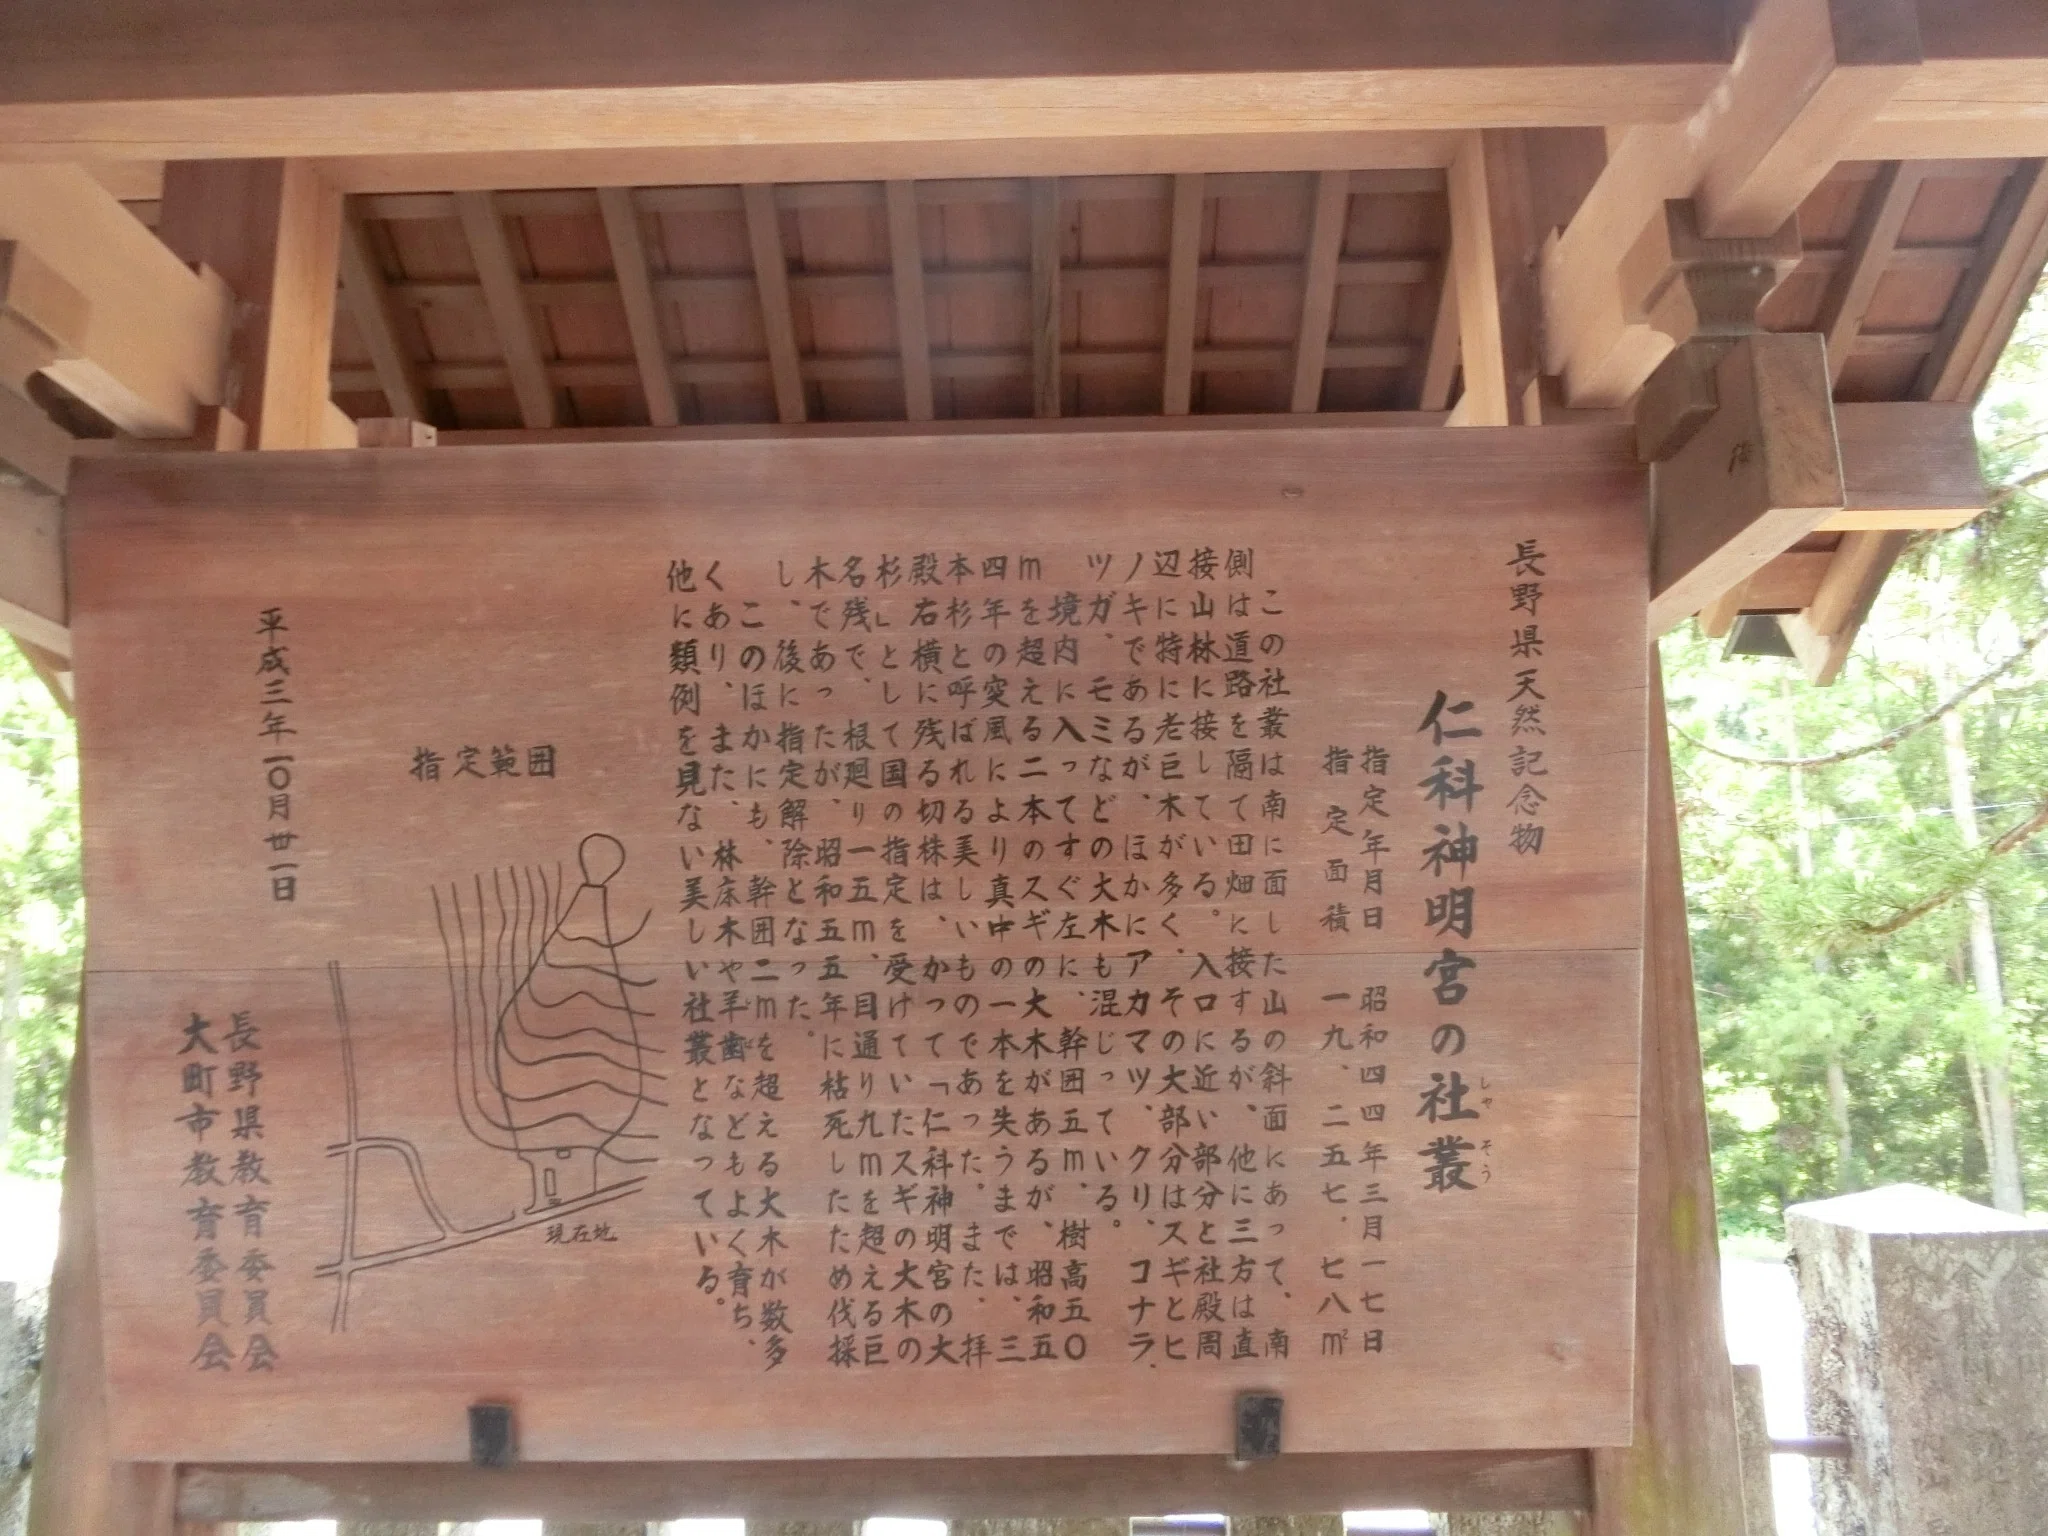 長野県天然記念物
仁科神明宮の社叢
しゃそう
指定年月日 昭和四四年三月一七日
指定面積 一九、二五七．七八㎡
この社叢は南に面した山の斜面にあって、南
側は道路を隔て田畑に接するが、他に三方は直
接山林に接している。入口に近い部分と社殿周
辺に特に老巨木が多く、その大部分はスギとヒ
ノキであるが、ほかにアカマツ、クリ、コナラ、
ツガ、モミなどの大木も混じっている。
境内に入ってすぐ左に、幹囲五ｍ、樹高五〇
ｍを超える二本のスギの大木があるが、昭和五
四年の突風により真中の一本を失うまでは、三
本杉と呼ばれる美しいものであった。また、拝
殿右横に残る切株は、かつて「仁科神明宮の大
杉」として国の指定を受けていたスギの大木の
名残で、根廻り一五ｍ、目通り九ｍを超える巨
木であったが、昭和五五年に枯死したため伐採
し、後に指定解除となった。
このほかにも、幹囲二ｍを超える大木が数多
くあり、また、林床木や羊歯などもよく育ち、
他に類例を見ない美しい社叢となっている。
指定範囲
現在地
平成三年一〇月卅一日
長野県教育委員会
大町市教育委員会